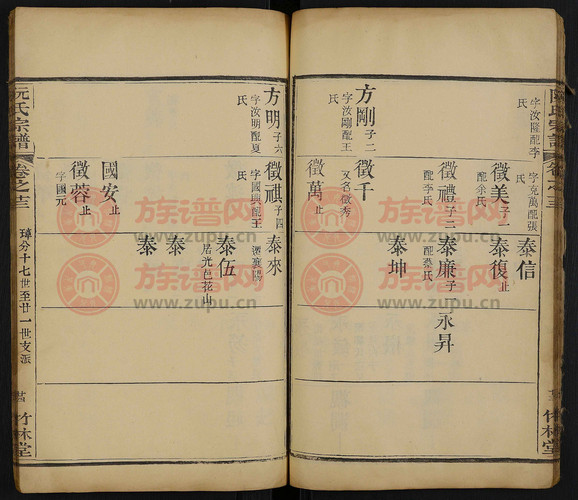 氏宗譜
卷之三
竹林堂
字汝隆配李氏
字克萬配張氏
泰信
徵美 子一
配余氏
泰復 止
徵禮 子二
配李氏
泰廉 子一
配蔡氏
永昇
泰坤
方剛 子二
字汝剛配王氏
徵千
又名徵秀
徵萬 止
方明 子六
字汝明配夏氏
徵祺 子四
字國興配王氏
泰來
遷襄陽
泰伍
居光包花山
泰
泰
國安 止
徵蓉 止
字國元
阮氏宗譜
卷之三
璋分十七世至廿一世支派
竹林堂
族谱网
www.zupu.cn
族谱网
www.zupu.cn